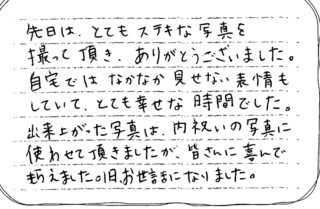 先日は、とてもステキな写真を
撮って頂き、ありがとうございました。
自宅ではなかなか見せない表情も
していて、とても幸せな時間でした。
出来上がった写真は、内祝いの写真に
使わせて頂きましたが、皆さんに喜んで
もらえました。お世話になりました。